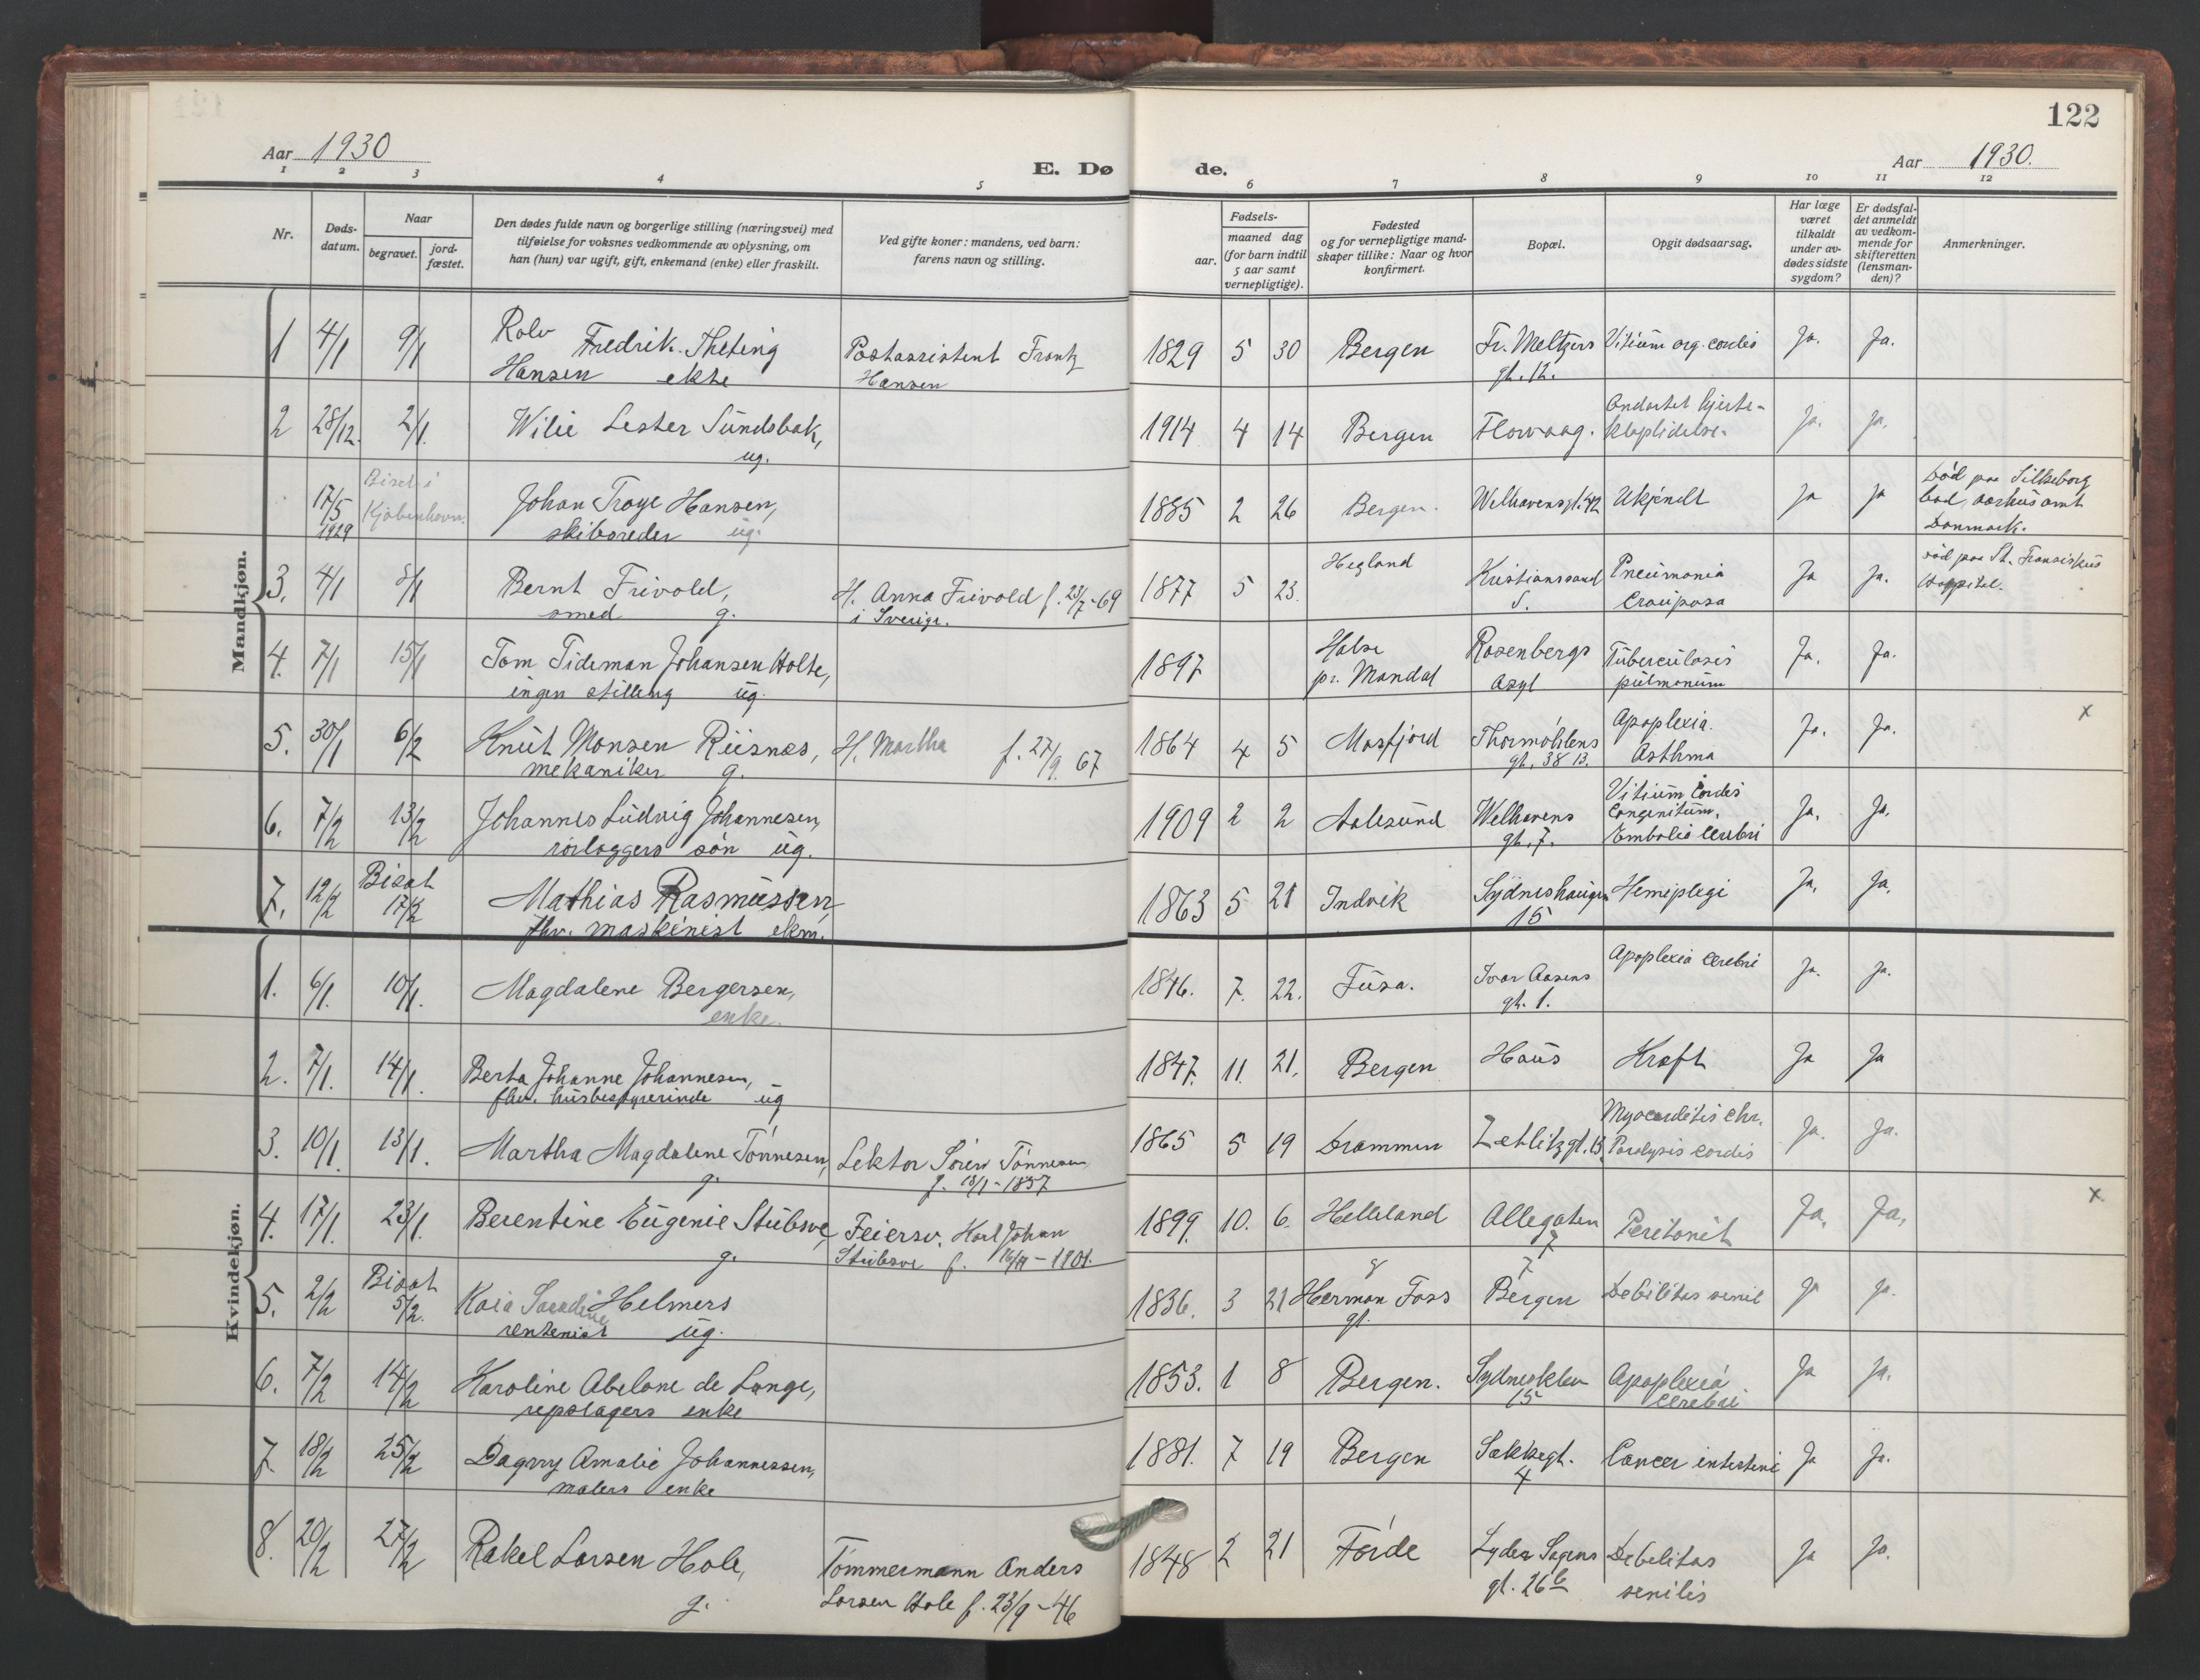 122
Aar 1930
E. Dø
de.
Aar 1930.
1 2 3 4 5 6 7 8 9 10 11 12
Nr.
Døds-
datum.
Naar
begravet.
jord-
fæstet.
Den dødes fulde navn og borgerlige stilling (næringsvei) med
tilføielse for voksnes vedkommende av oplysning, om
han (hun) var ugift, gift, enkemand (enke) eller fraskilt.
Ved gifte koner: mandens, ved barn:
farens navn og stilling.
Fødsels-
aar.
maaned dag
(for barn indtil
5 aar samt
vernepligtige).
Fødested
og for vernepligtige mand-
skaper tillike: Naar og hvor
konfirmert.
Bopæl.
Opgit dødsaarsag.
Har læge
været
tilkaldt
under av-
dødes sidste
sygdom?
Er dødsfal-
det anmeldt
av vedkom-
mende for
skifteretten
(lensman-
den)?
Anmerkninger.
Mandkjøn.
1 4/1 9/1 Rolv Fredrik Theting
Hansen ekte
Postassistent Frantz
Hansen
1829 5 30 Bergen Fr. Meltzers
gt. 12.
Vitium org. cordis Ja. Ja.
2 28/12. 2/1. Wilie Lester Sundsbak,
ug.
1914 4 14 Bergen Florvaag. Ondartet hjerte-
klaplidelse. Ja. Ja.
17/5
1929
Biset i
Kjøbenhavn.
Johan Troye Hansen,
skibsreder ug.
1885 2 26 Bergen. Welhavensgt. 42 Ukjendt Ja Ja
Død paa Silkeborg
bad, Aarhus amt
Danmark.
3. 4/1 8/1 Bernt Frivold,
smed g.
H. Anna Frivold f. 23/7-69
i Sverige.
1877 5 23. Hegland Kristianssand
S.
Pneumonia
Crouposa
Ja Ja.
død paa St. Fransiskus
Hospital.
4. 7/1 15/1 Tom Tideman Johansen Holte,
ingen stilling ug.
1897 Halse
pr. Mandal
Rosenbergs
Asyl
Tuberculosis
pulmonum
Ja. Ja.
5. 30/1 6/2 Knut Monsen Riisnes,
mekaniker g.
H. Martha f. 27/9 67
1864 4 5 Masfjord Thormøhlens
gt. 38 B.
Apoplexia.
Asthma
Ja. Ja. x
6. 7/2 13/2 Johannes Ludvig Johannesen,
rørlæggers søn ug.
1909 2 2 Aalesund Welhavens
gt. 7.
Vitium Cordis
Congenitum.
Embolia Cerebri
Ja. Ja.
7. 12/2 Bisat
17/2
Mathias Rasmussen
fhv. maskinist ekm.
1863 5 21 Indvik Sydneshaugen
15
Hemiplegi Ja. Ja.
Kvindekjøn.
1. 6/1. 10/1. Magdalene Bergersen,
enke.
1846. 7. 22. Fusa. Ivar Aasens
gt. 1.
Apoplexia Cerebri Ja. Ja.
2. 7/1. 14/1. Berta Johanne Johannesen,
fhv. husbestyrerinde ug
1847. 11. 21. Bergen Haus Kræft Ja Ja
3. 10/1. 13/1. Martha Magdalene Tønnesen,
g.
Lektor Sören Tønnesen
f. 18/1-1857
1865 5 19 Drammen Zetlitzgt. 13. Myocarditis chr.
Paralysis cordis
Ja. Ja.
4. 17/1. 23/1. Berentine Eugenie Stubsve,
g.
Feiersv. Karl Johan
Stubsve f. 16/11-1901.
1899. 10. 6. Helleland Allegaten
7
Peritonit Ja. Ja. x
5. 2/2 Bisat
5/2.
Kaia Helmers
rentenist ug.
1836. 3 21 Herman Foss
gt.
Bergen Debilitas senil Ja Ja.
6. 7/2 14/2 Karoline Abelone de Lange,
repslagers enke
1853. 1 8 Bergen. Sydneskleu
15
Apoplexia
Cerebri
Ja Ja.
7. 18/2 25/2 Dagny Amalie Johannessen,
malers enke
1881. 7 19 Bergen Sækkegt.
4
Cancer intestini Ja Ja.
8. 20/2 27/2 Rakel Larsen Hole,
g.
Tømmermann Anders
Larsen Hole f. 23/9-46
1848 2 21 Førde Lyder Sagens
gt. 26 b
Debelitas
senilis
Ja Ja.